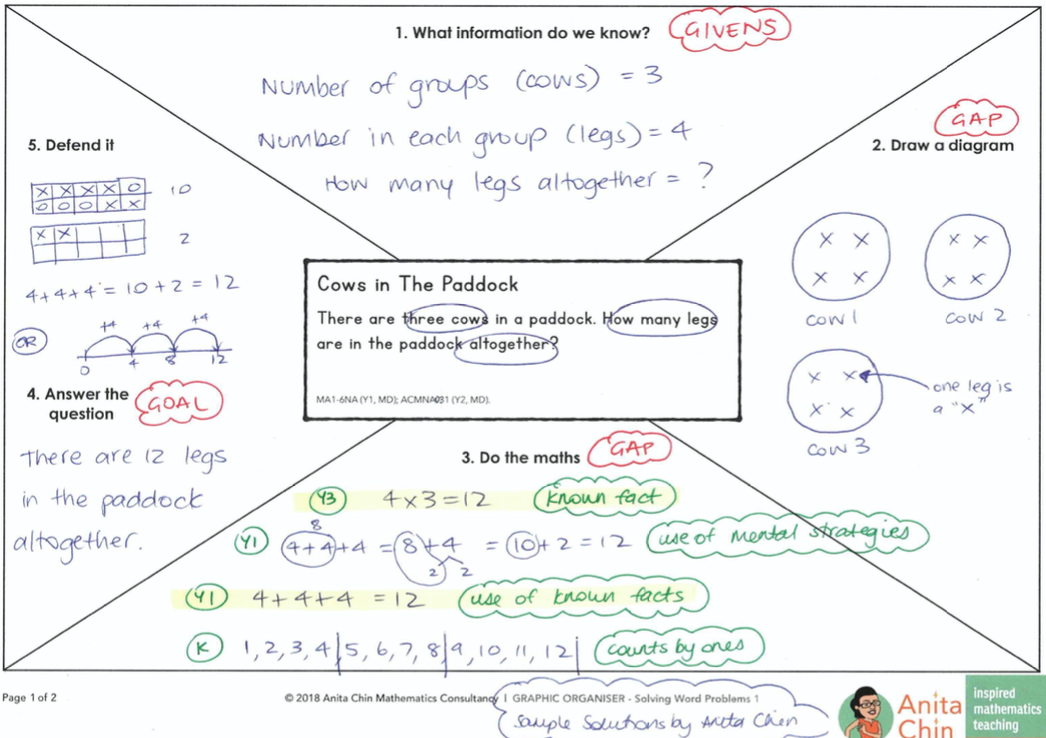 1. What information do we know? GIVENS
Number of groups (cows) = 3
Number in each group (legs) = 4
How many legs altogether = ?
GAP
2. Draw a diagram
X X X X
X X X X
COW 1 COW 2
X X
X X
one leg is
a "X"
COW 3
Cows in The Paddock
There are three cows in a paddock. How many legs
are in the paddock altogether?
MA1-6NA (Y1, MD); ACMNA031 (Y2, MD).
3. Do the maths GAP
Y3 4 x 3 = 12 known fact
8
Y1 4+4+4 = 8+4 = 10+2 = 12 use of mental strategies
2 2
Y1 4+4+4 = 12 use of known facts
K 1, 2, 3, 4 | 5, 6, 7, 8 | 9, 10, 11, 12 | counts by ones
5. Defend it
X X X X O 10
O O O X X
X X 2
4+4+4 = 10+2 = 12
+4 +4 +4
OR
0 4 8 12
4. Answer the
question GOAL
There are 12 legs
in the paddock
altogether.
Page 1 of 2 © 2018 Anita Chin Mathematics Consultancy | GRAPHIC ORGANISER - Solving Word Problems 1
Sample Solutions by Anita Chin
Anita
Chin
inspired
mathematics
teaching